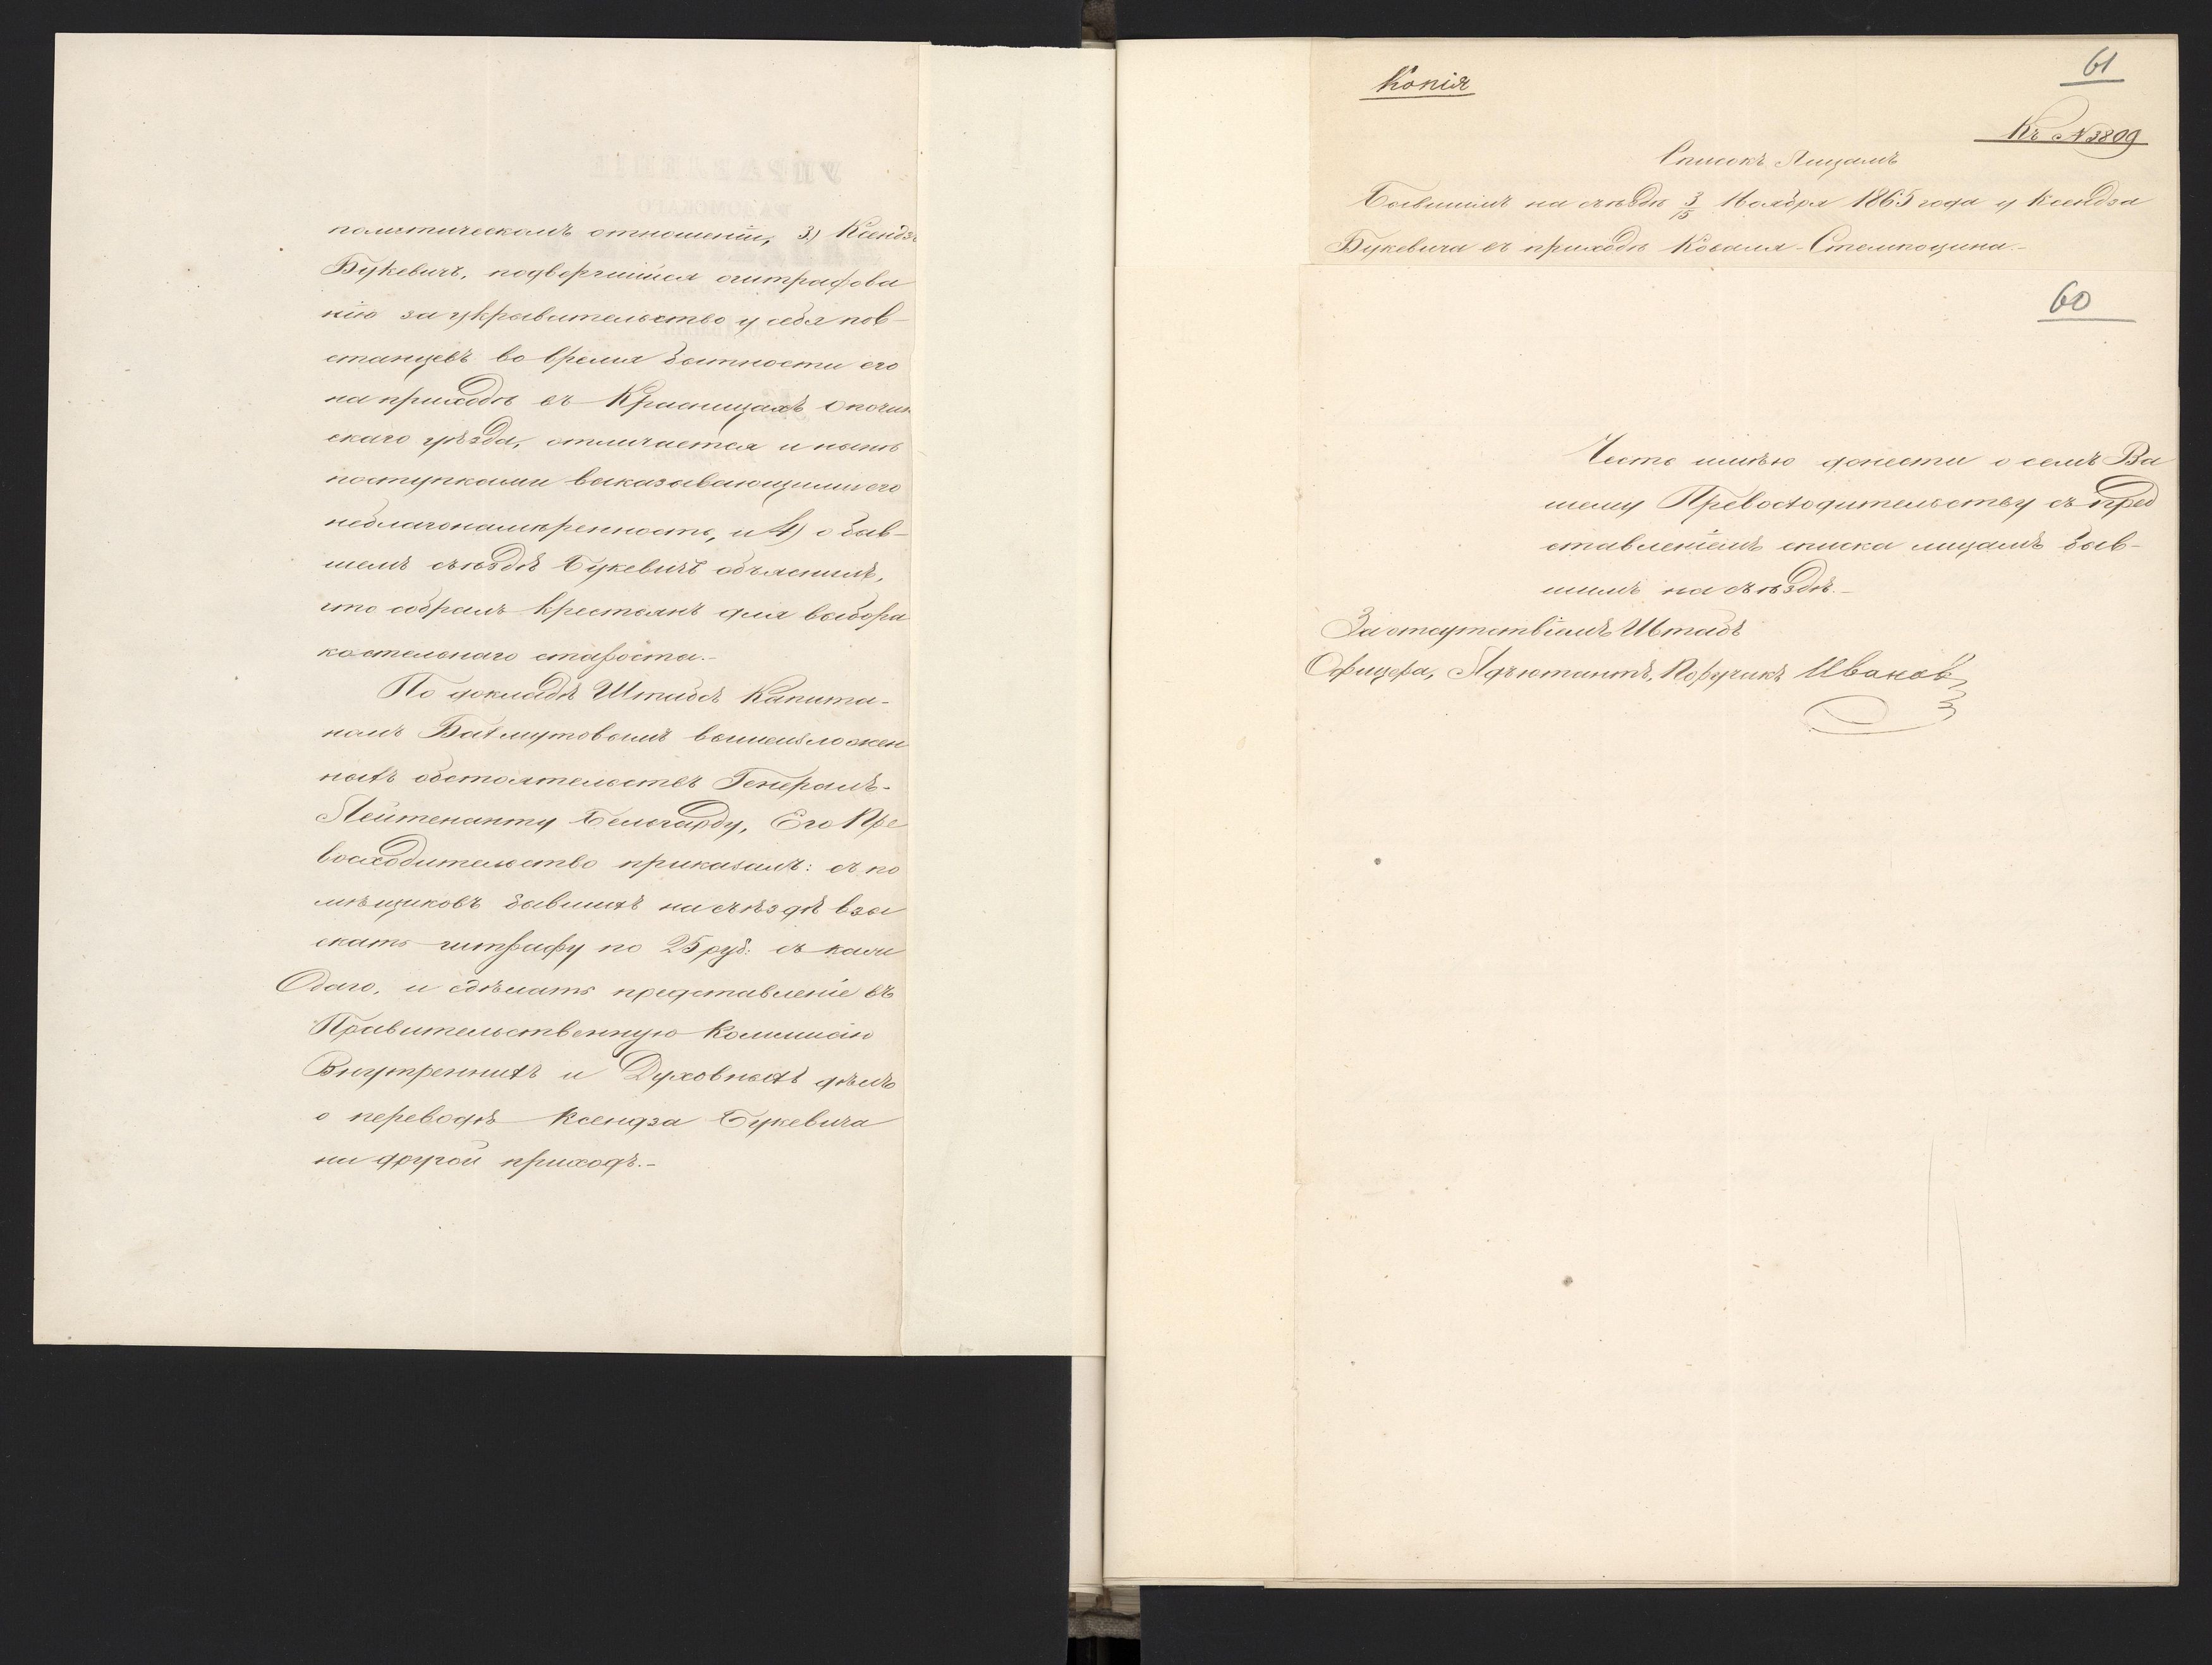 политическомъ отношеніи, 3) Ксендзъ
Букевичъ, подвергшійся оштрафова
нію за укрывательство у себя пов-
станцевъ во время бытности его
на приходѣ въ Красницахъ Опочин
скаго уѣзда, отличается и нынѣ
поступками выказывающими его
неблагонамѣренность, и 4) о быв-
шемъ съѣздѣ Букевичъ объяснилъ,
что собралъ крестьянъ для выбора
костельнаго старосты.-
По докладѣ Штабсъ Капита-
номъ Бахмутовымъ вышеизложен
ныхъ обстоятельствъ Генералъ-
Лейтенанту Бельгарду, Его Пре
восходительство приказалъ: съ по
мѣщиковъ бывшихъ на съѣздѣ взы
скать штрафу по 25 руб: съ каж
даго, и сдѣлать представленіе въ
Правительственную Коммисію
Внутреннихъ и Духовныхъ дѣлъ
о переводѣ Ксендза Букевича
на другой приходъ.-
61
Копія
Къ №3809
Списокъ Лицамъ
Бывшимъ на съѣздѣ 3/15 Ноября 1865 года у Ксендза
Букевича въ приходѣ Коваля-Стемпоцина.-
60
Честь имѣю донести о семъ Ва
шему Превосходительству съ пред
ставленіемъ списка лицамъ быв-
шимъ на съѣздѣ.-
За отсутствіемъ Штабъ
Офицера, Адъютантъ, Поручикъ Ивановъ